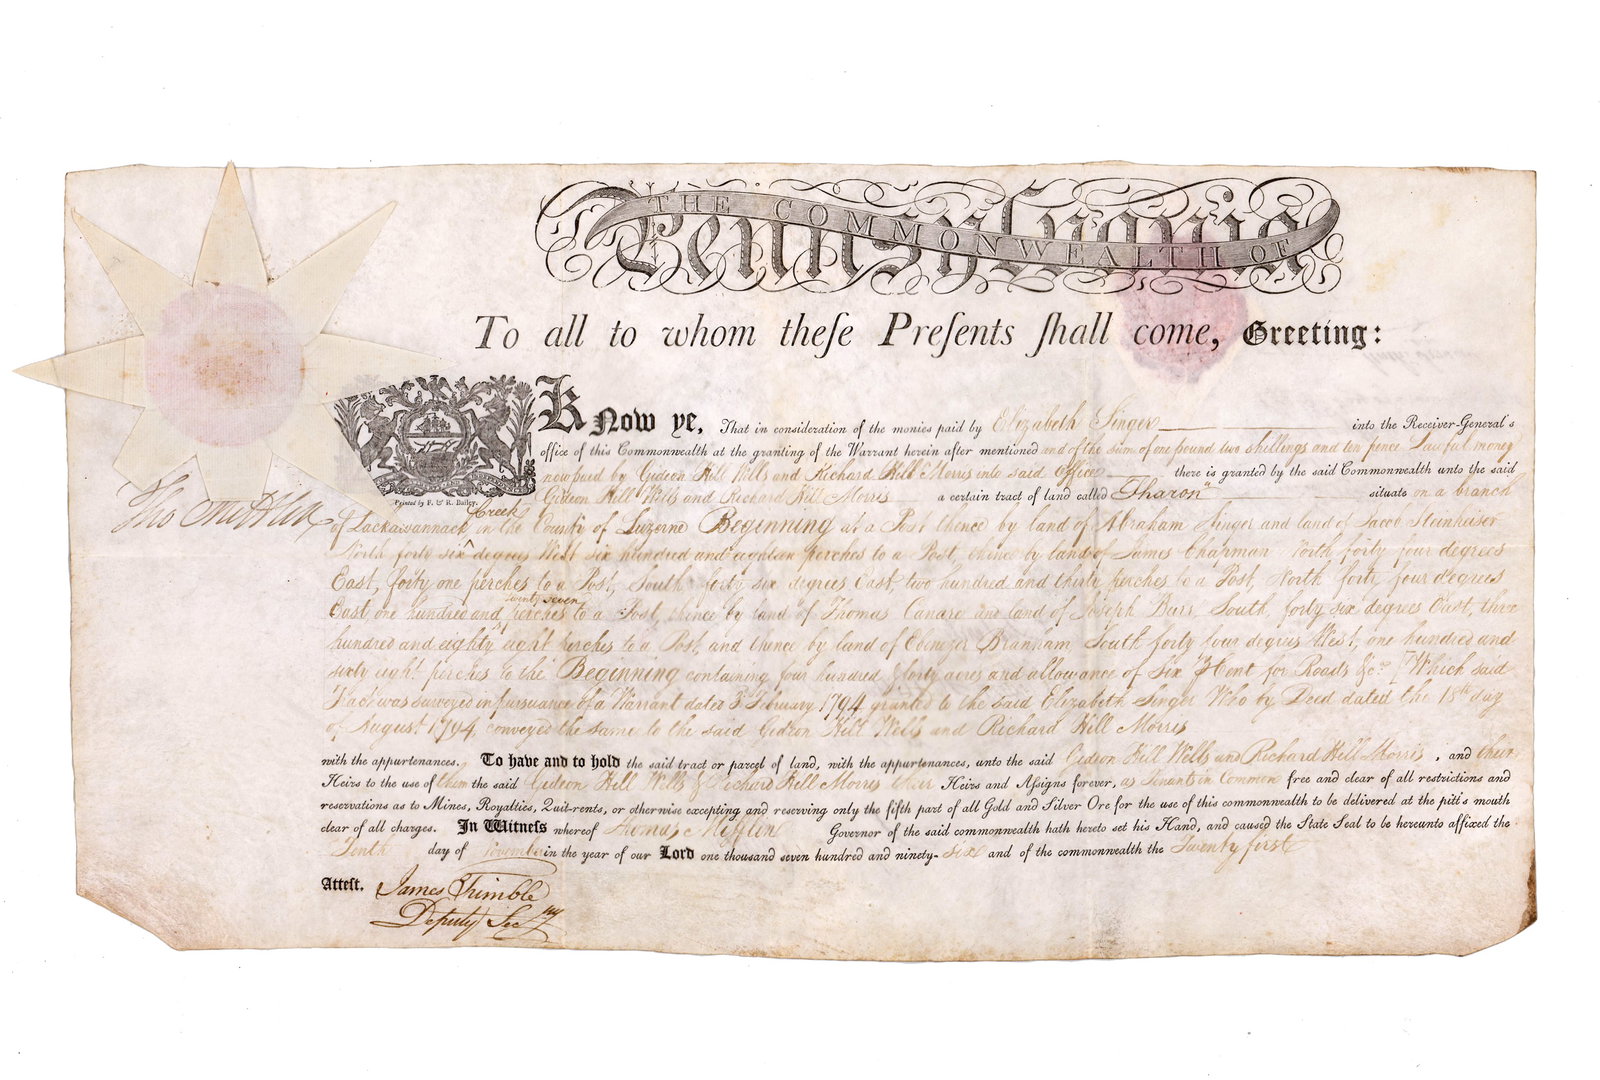 THE COMMONWEALTH OF
Pennsylvania
To all to whom theſe Preſents ſhall come, Greeting:
Know ye, That in conſideration of the monies paid by Elizabeth Singer into the Receiver-General's
office of this Commonwealth at the granting of the Warrant herein after mentioned and of the sum of one pound two shillings and ten pence Lawful money
now paid by Gideon Hill Wells and Richard Hill Morris into said Office there is granted by the said Commonwealth unto the said
Gideon Hill Wells and Richard Hill Morris a certain tract of land called "Sharon" situate on a branch
Printed by F. & R. Bailey.
Tho Mifflin
of Lackawannack Creek in the County of Luzerne Beginning at a Post thence by land of Abraham Singer and land of Jacob Steinheiser
North forty six degrees West six hundred and eighteen perches to a Post, thence by land of James Chapman North forty four degrees
East, forty one perches to a Post, South forty six degrees East, two hundred and thirty perches to a Post, North forty four degrees
East, one hundred and twenty seven perches to a Post, thence by land of Thomas Canare and land of Joseph Burr, South, forty six degrees East, three
hundred and eighty eight perches to a Post, and thence by land of Ebenezer Branham, South forty four degrees West, one hundred and
sixty eight perches to the Beginning containing four hundred & forty acres and allowance of Six ⅌ Cent for Roads &c. [Which said
Tract was surveyed in pursuance of a Warrant dated 3d February 1794 granted to the said Elizabeth Singer Who by Deed dated the 18th day
of August 1794, conveyed the same to the said Gideon Hill Wells and Richard Hill Morris
with the appurtenances. To have and to hold the said tract or parcel of land, with the appurtenances, unto the said Gideon Hill Wells and Richard Hill Morris, and their
Heirs to the use of them the said Gideon Hill Wells & Richard Hill Morris their Heirs and Aſsigns forever, as Tenants in Common free and clear of all restrictions and
reservations as to Mines, Royalties, Quit-rents, or otherwise excepting and reserving only the fifth part of all Gold and Silver Ore for the use of this commonwealth to be delivered at the pit's mouth
clear of all charges. In Witneſs whereof Thomas Mifflin Governor of the said commonwealth hath hereto set his Hand, and caused the State Seal to be hereunto affixed the
Tenth day of November in the year of our Lord one thousand seven hundred and ninety-six and of the commonwealth the Twenty first
Attest. James Trimble
Deputy Secry